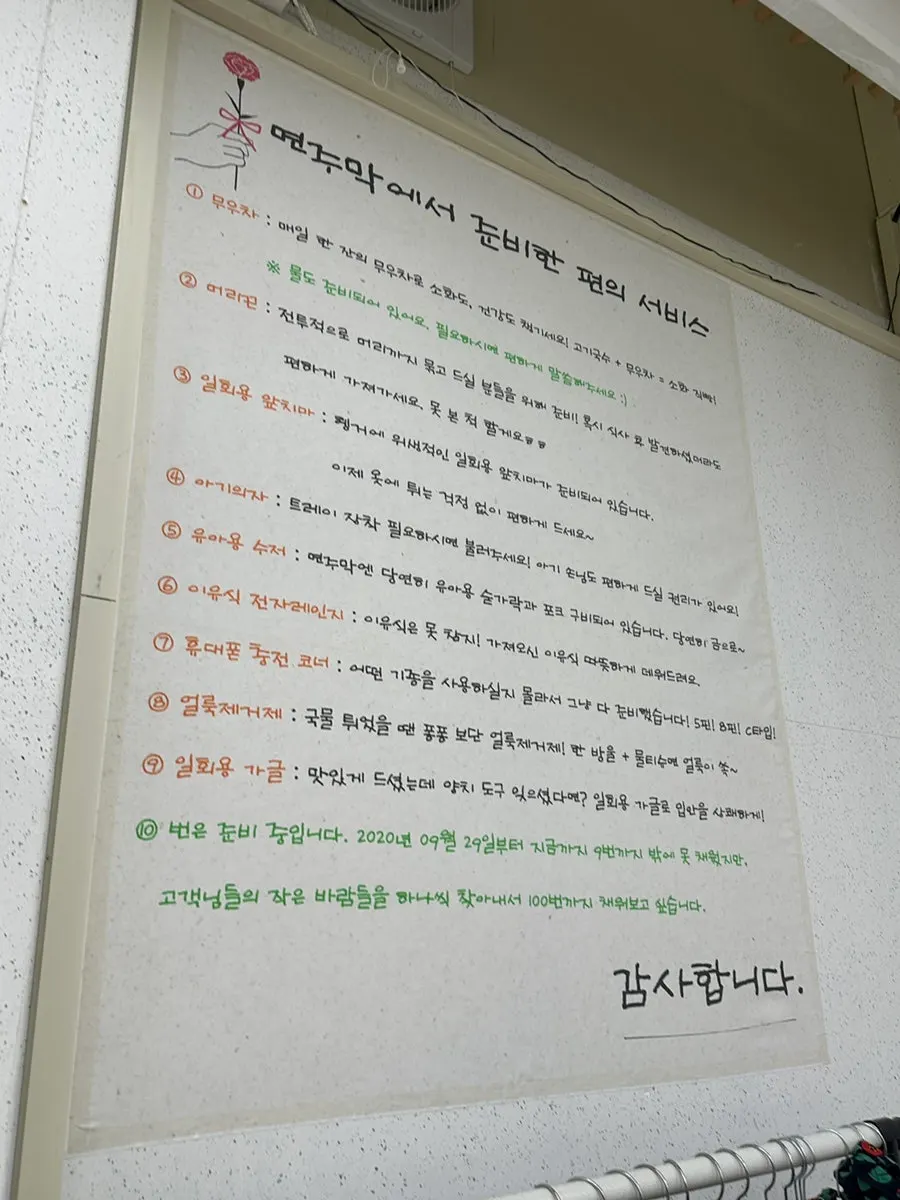 면주막에서 준비한 편의 서비스
① 무우차 : 매일 한 잔의 무우차로 소화도, 건강도 챙기세요! 고기국수 + 무우차 = 소화 직빵!
※ 물도 준비되어 있어요. 필요하시면 편하게 말씀해주세요 :)
② 머리끈 : 전투적으로 머리까지 묶고 드실 분들을 위해 준비! 혹시 식사 후 발견하셨더라도
편하게 가져가세요. 못 본 척 할게요ㅎㅎ
③ 일회용 앞치마 : 행거에 위생적인 일회용 앞치마가 준비되어 있습니다.
이제 옷에 튀는 걱정 없이 편하게 드세요~
④ 아기의자 : 트레이 장착 필요하시면 불러주세요! 아기 손님도 편하게 드실 권리가 있어요!
⑤ 유아용 수저 : 면주막엔 당연히 유아용 숟가락과 포크 구비되어 있습니다. 당연히 공으로~
⑥ 이유식 전자레인지 : 이유식은 못 참지! 가져오신 이유식 따뜻하게 데워드려요.
⑦ 휴대폰 충전 코너 : 어떤 기종을 사용하실지 몰라서 그냥 다 준비했습니다! 5핀! 8핀! C타입!
⑧ 얼룩제거제 : 국물 튀었을 땐 퐁퐁 보단 얼룩제거제! 한 방울 + 물티슈면 얼룩이 쏙~
⑨ 일회용 가글 : 맛있게 드셨는데 양치 도구 잊으셨다면? 일회용 가글로 입안을 상쾌하게!
⑩ 번은 준비 중입니다. 2020년 09월 29일부터 지금까지 9번까지 밖에 못 채웠지만,
고객님들의 작은 바람들을 하나씩 찾아내서 100번까지 채워보고 싶습니다.
감사합니다.